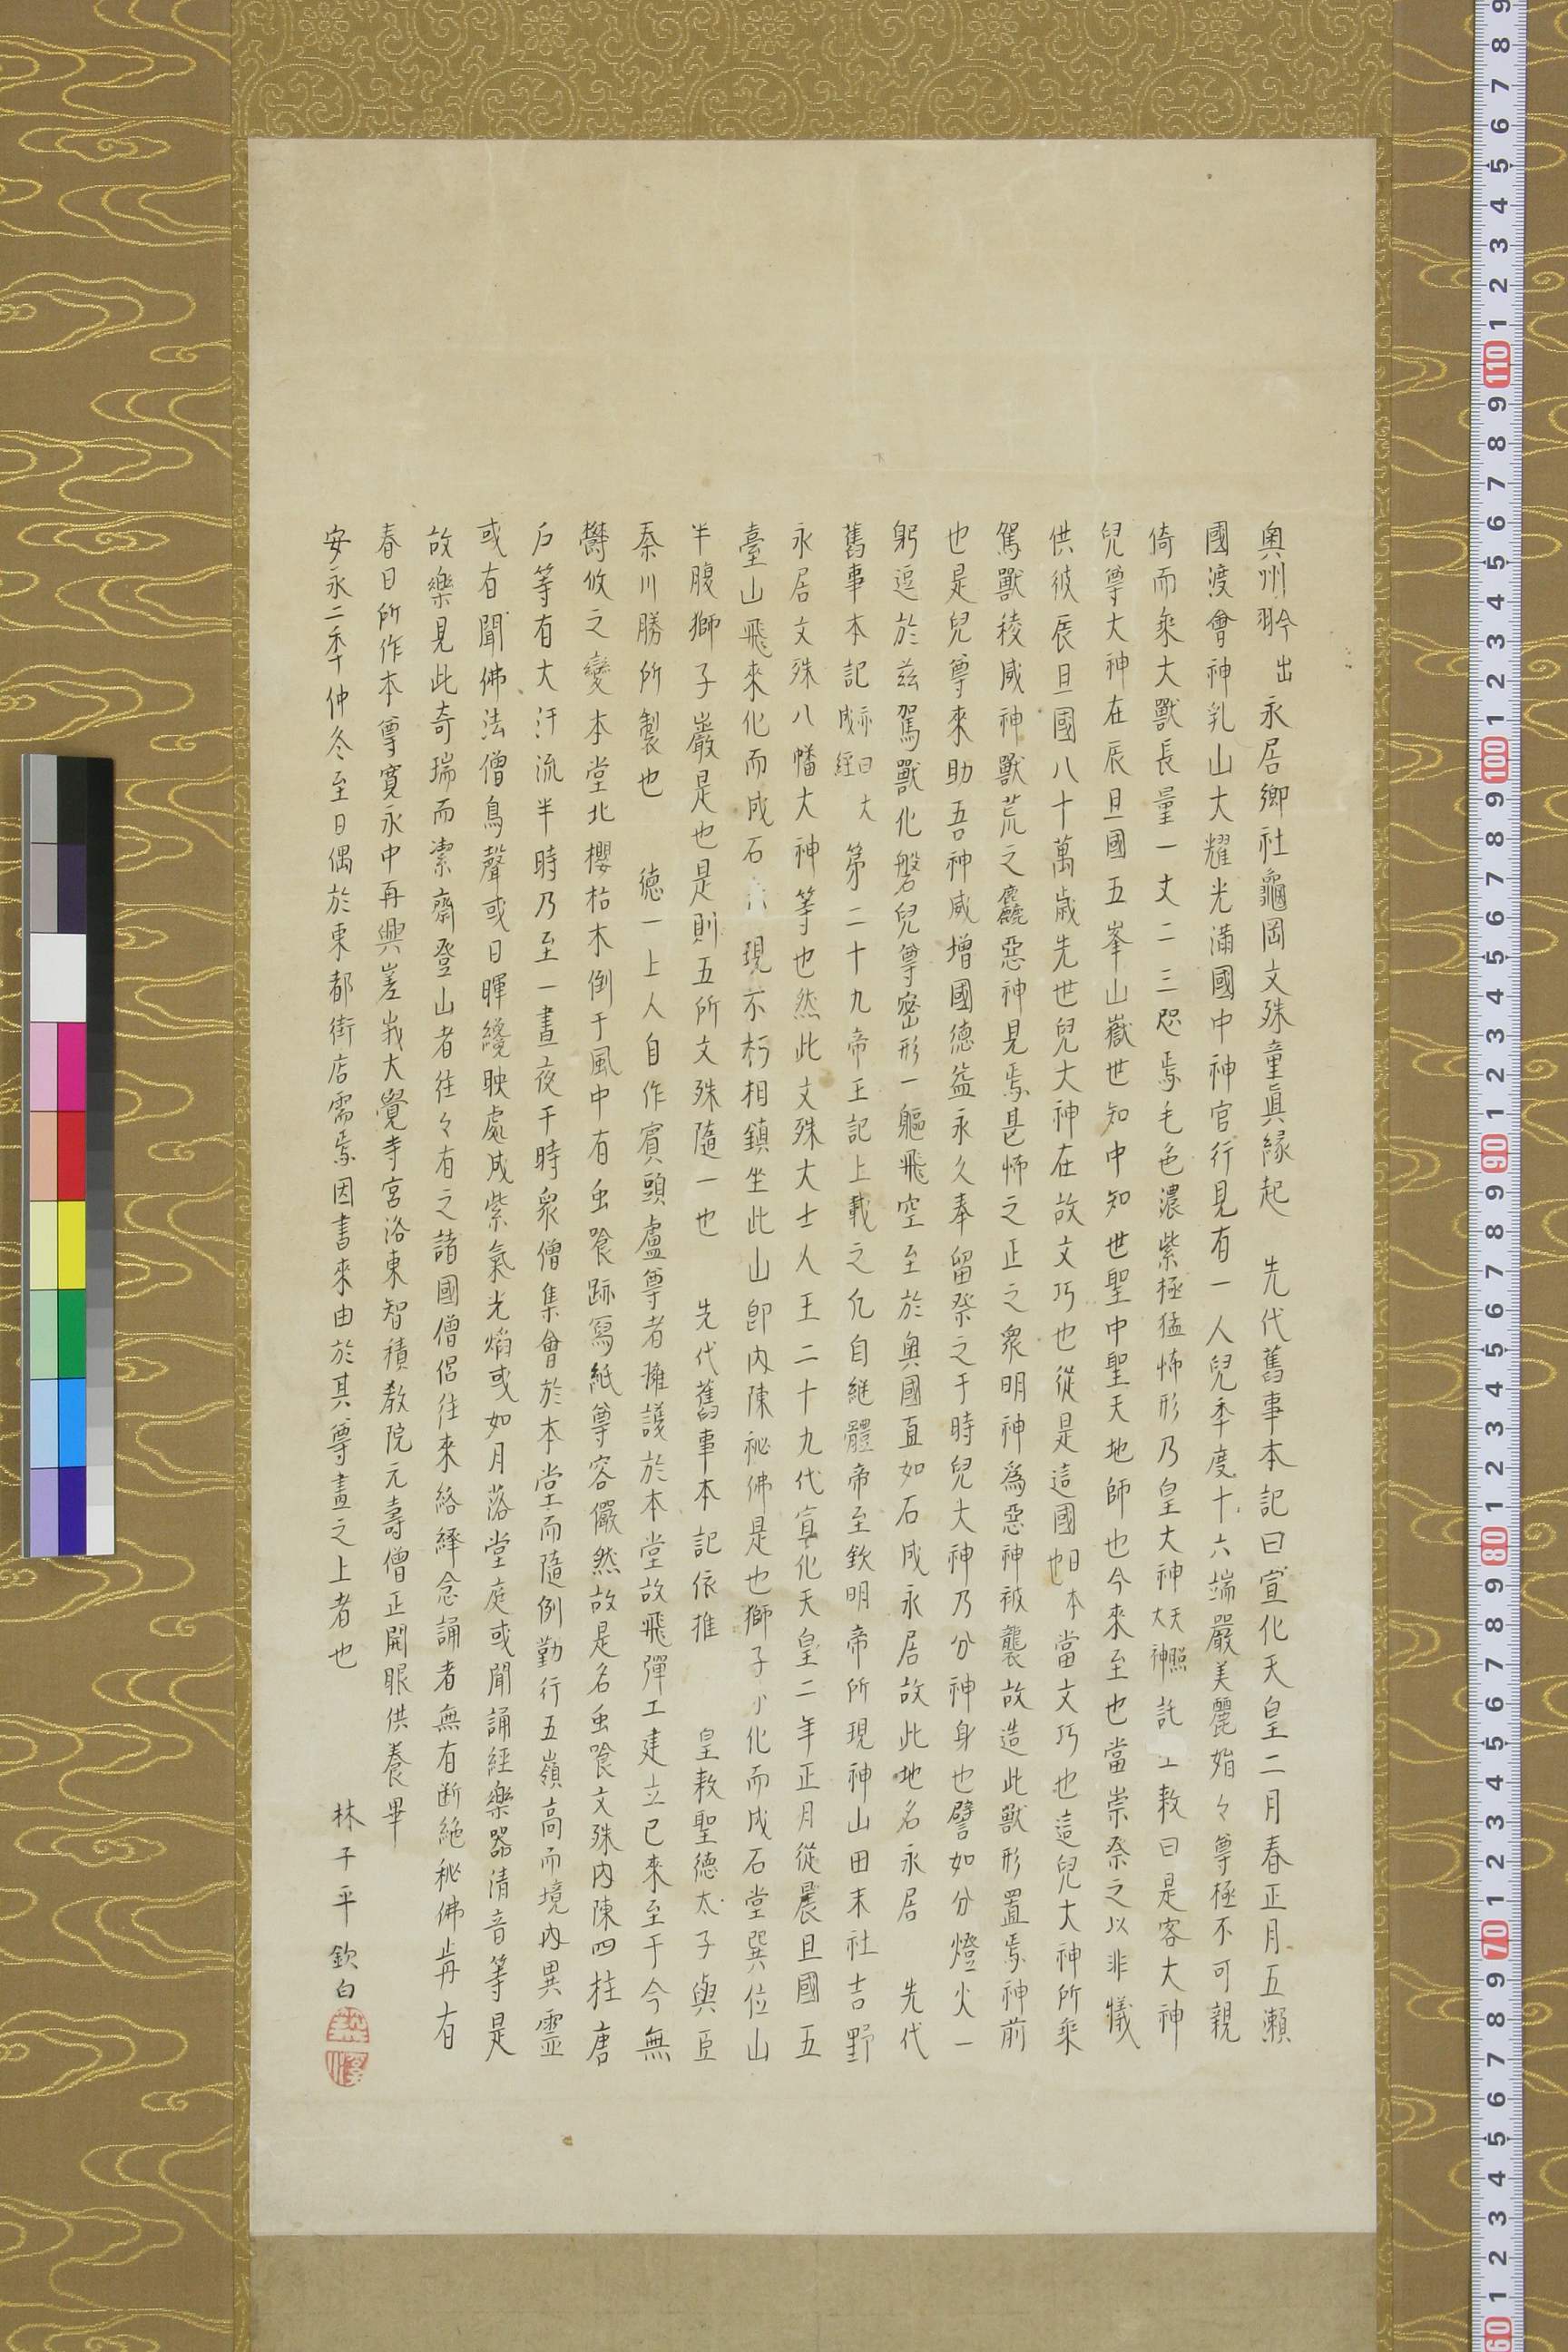 奥州 出永居郷社龜岡文殊童眞縁起　先代舊事本記曰宣化天皇二月春正月五瀨
國渡會神乳山大耀光滿國中神官行見有一人兒年度十六端嚴美麗始々尊極不可親
倚而乘大獸長量一丈二三咫焉毛色濃紫極猛怖形乃皇大神天照大神託 敕曰是客大神
兒尊大神在辰旦國五峯山嶽世知中知世聖中聖天地師也今來至也當崇祭之以非犠
供彼辰旦國八十萬歳先世兒大神在故文巧也從是這國日本也當文巧也這兒大神所乘
駕獸稜威神獸荒之麤惡神見焉甚怖之正之衆明神爲惡神被襲故造此獸形置焉神前
也是兒尊來助吾神威增國德益永久奉留祭之于時兒大神乃分神身也譬如分燈火一
躬逗於兹駕獸化磐兒尊密形一軀飛空至於奥國直如石成永居故此地名永居　先代
舊事本記亦曰大成經第二十九帝王記上載之亿自継體帝至欽明帝所現神山田末社吉野
永居文殊八幡大神等也然此文殊大士人王二十九代宣化天皇二年正月從晨旦國五
臺山飛來化而成石 現不朽相鎮坐此山卽内陳祕佛是也獅子 化而成石堂巽位山
半腹獅子巖是也是則五所文殊隨一也　先代舊事本記依推　皇敕聖德太子與臣
秦川勝所製也　德一上人自作賓頭盧尊者擁護於本堂故飛彈工建立已來至于今無
欝攸之變本堂北櫻枯木倒于風中有虫喰跡寫紙尊容儼然故是名虫喰文殊内陳四柱唐
戶等有大汗流半時乃至一晝夜于時衆僧集會於本堂而隨例勤行五嶺高而境内異靈
或有聞佛法僧鳥聲或日暉纔映處成紫氣光焰或如月落堂庭或聞誦經樂器清音等是
故樂見此奇瑞而潔齋登山者往々有之諸國僧侶往來絡繹念誦者無有断絶秘佛 有
春日所作本尊寛永中再興嵳峩大覺寺宮洛東智積教院元壽僧正開眼供養畢
安永二年仲冬至日偶於東都街店需焉因書來由於其尊畫之上者也　林子平欽白